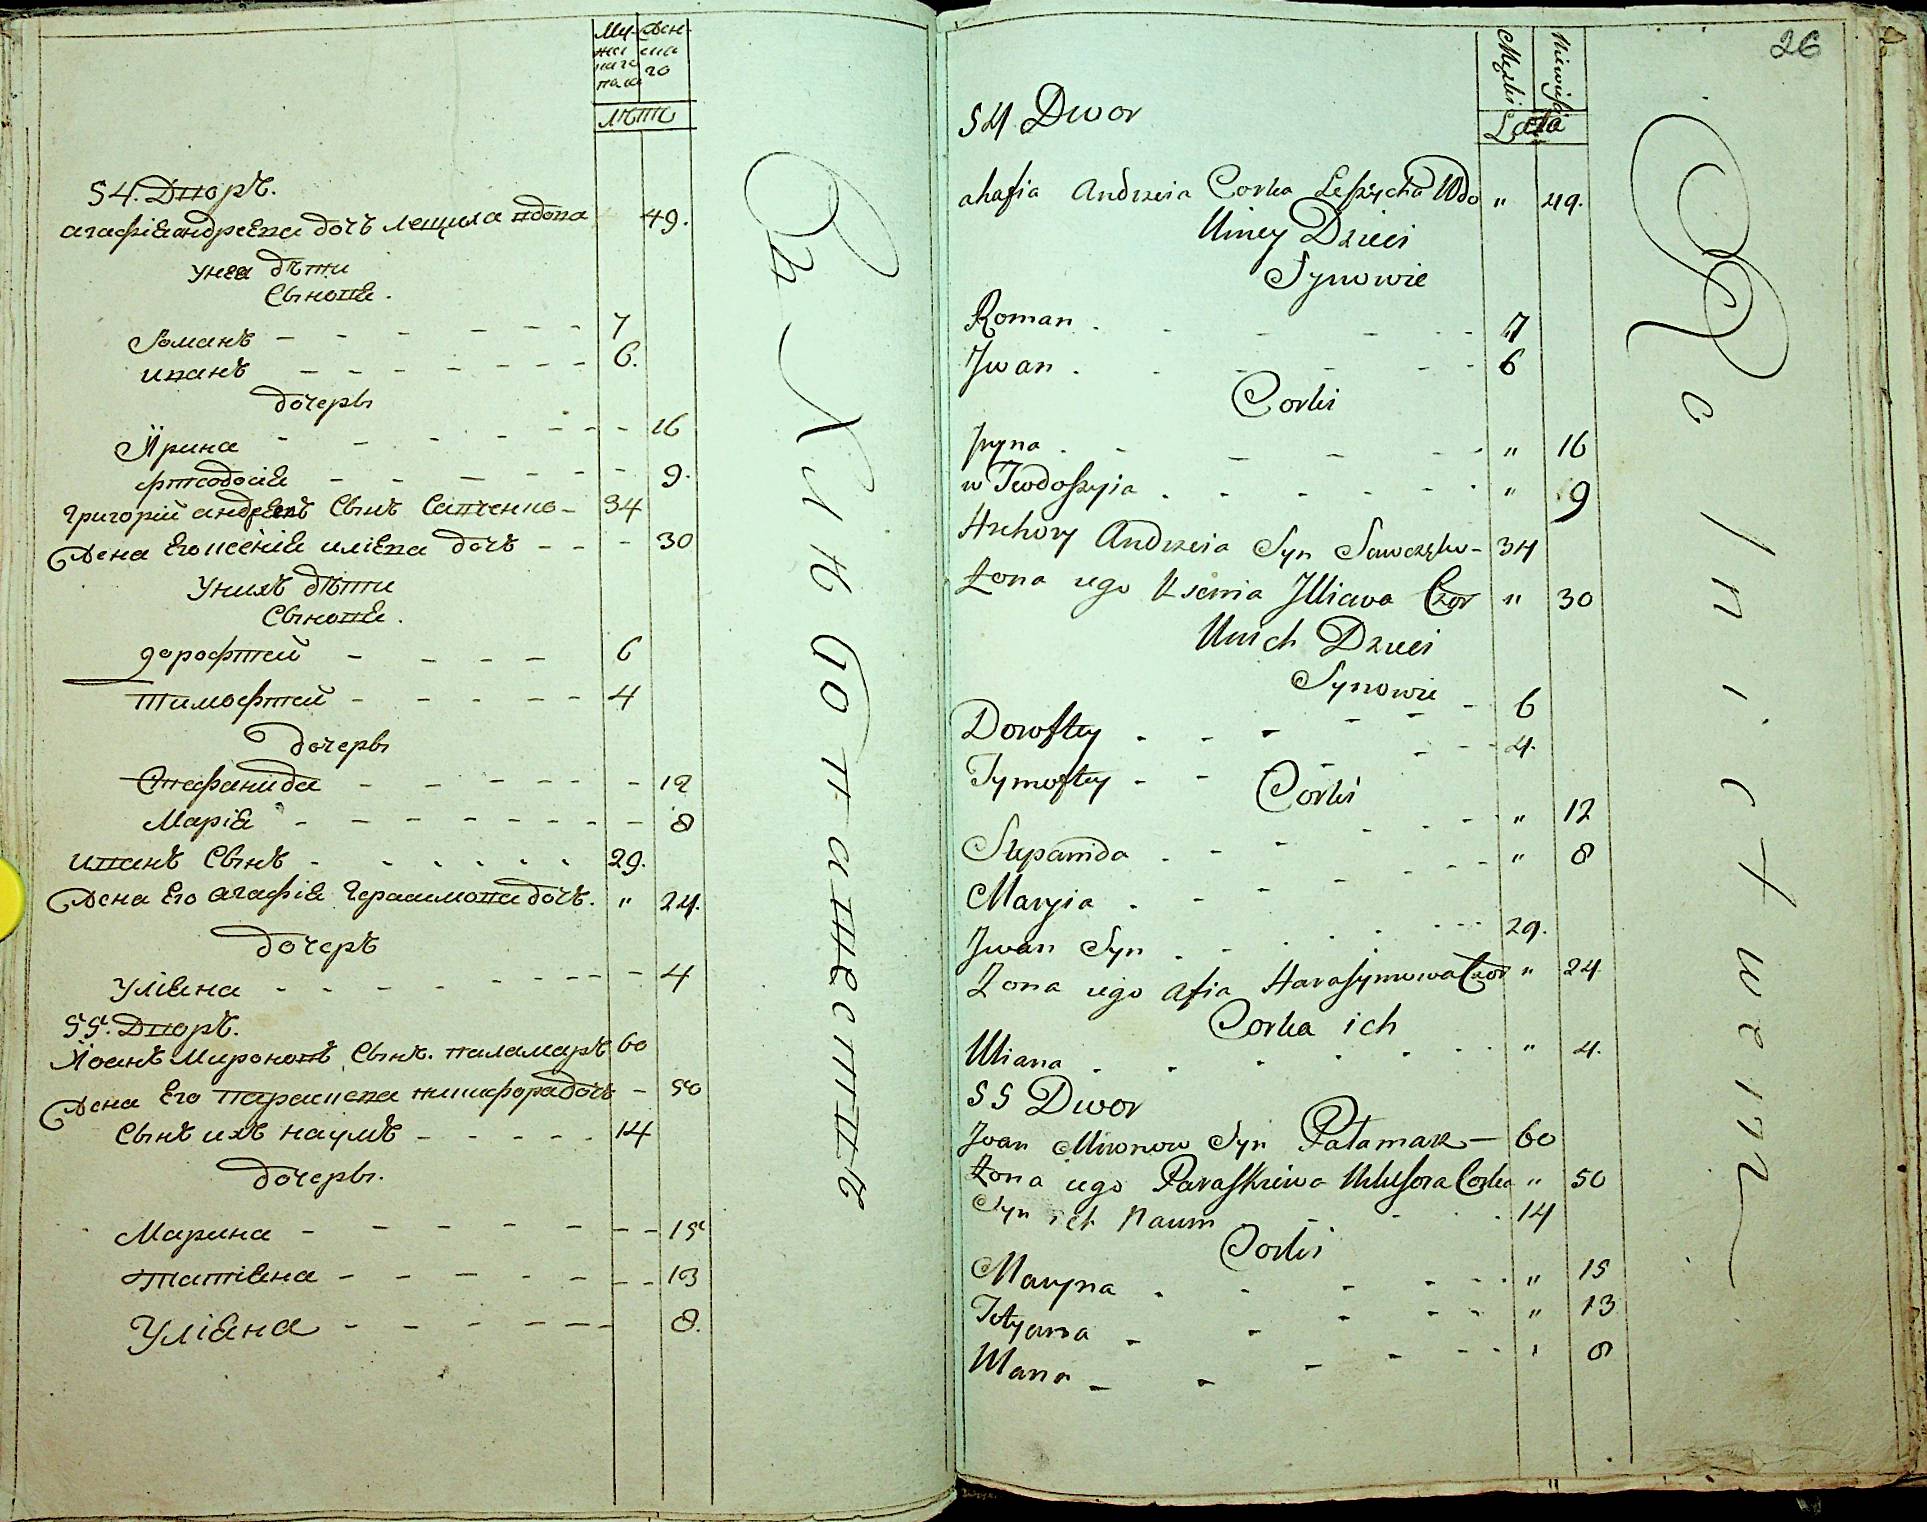 Му-
жеска
наго
пола
Жен-
ска
го
лѣтъ
54. Дворъ.
агафіа андреева дочъ лещиха вдова 49.
унеа дѣти
Сынове.
Романъ 7
иванъ 6.
дочеры
Ирина 16
фтеодосіа 9.
Григорій андреевъ Сынъ Савченко 34
Жена Его ксеніа иліева дочъ 30
Унихъ дѣти
Сынове.
дорофтей 6
тимофтей 4
дочеры
Стефанида 12
Маріа 8
иванъ Сынъ 29.
Жена Его агафіа Герасимова дочъ. " 24.
дочеръ
Уліана 4
55. Дворъ.
Иоанъ Мироновъ Сынъ. паламаръ 60
Жена Его параскева никифора дочъ 50
Сынъ ихъ наумъ 14
дочеры.
Марина 15
татіана 13
Уліана 8.
26
Męski
Niewieści
Lata
54 Dwor
ahafia Andrzeia Corka Leszycha Wdo " 49.
Uniey Dzieci
Synowie
Roman 7
Jwan 6
Corki
Jryna " 16
w Teodoszyia " 9
Hrehory Andrzeia Syn Sawczęko 34
Żona iego Ksenia Jlliewa Czor " 30
Unich Dzieci
Synowie
Doroftey 6
Tymoftey 4.
Corki
Stepanida " 12
Maryia " 8
Jwan Syn 29.
Żona iego Afia Harasymowa Czor " 24
Corka ich
Uliana " 4.
55 Dwor
Jwan Mironow Syn Pałamarz 60
Żona iego Paraskiewa Nikifora Corka " 50
Syn ich Naum 14
Corki
Maryna " 15
Totyana " 13
Uliana " 8
Rolnictwem